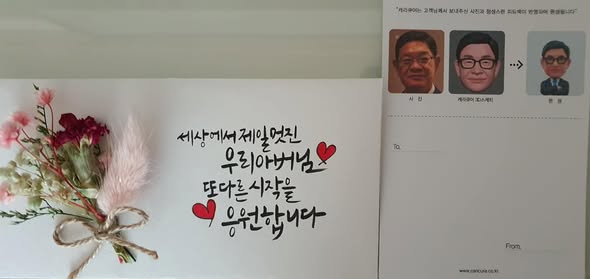 세상에서 제일 멋진
우리 아버님
또다른 시작을
응원합니다
"캐리큐어는 고객님께서 보내주신 사진과 정성스런 피드백이 반영되어 완성됩니다"
사 진
캐리큐어 3D스케치
완 성
To.
From.
www.caricure.co.kr